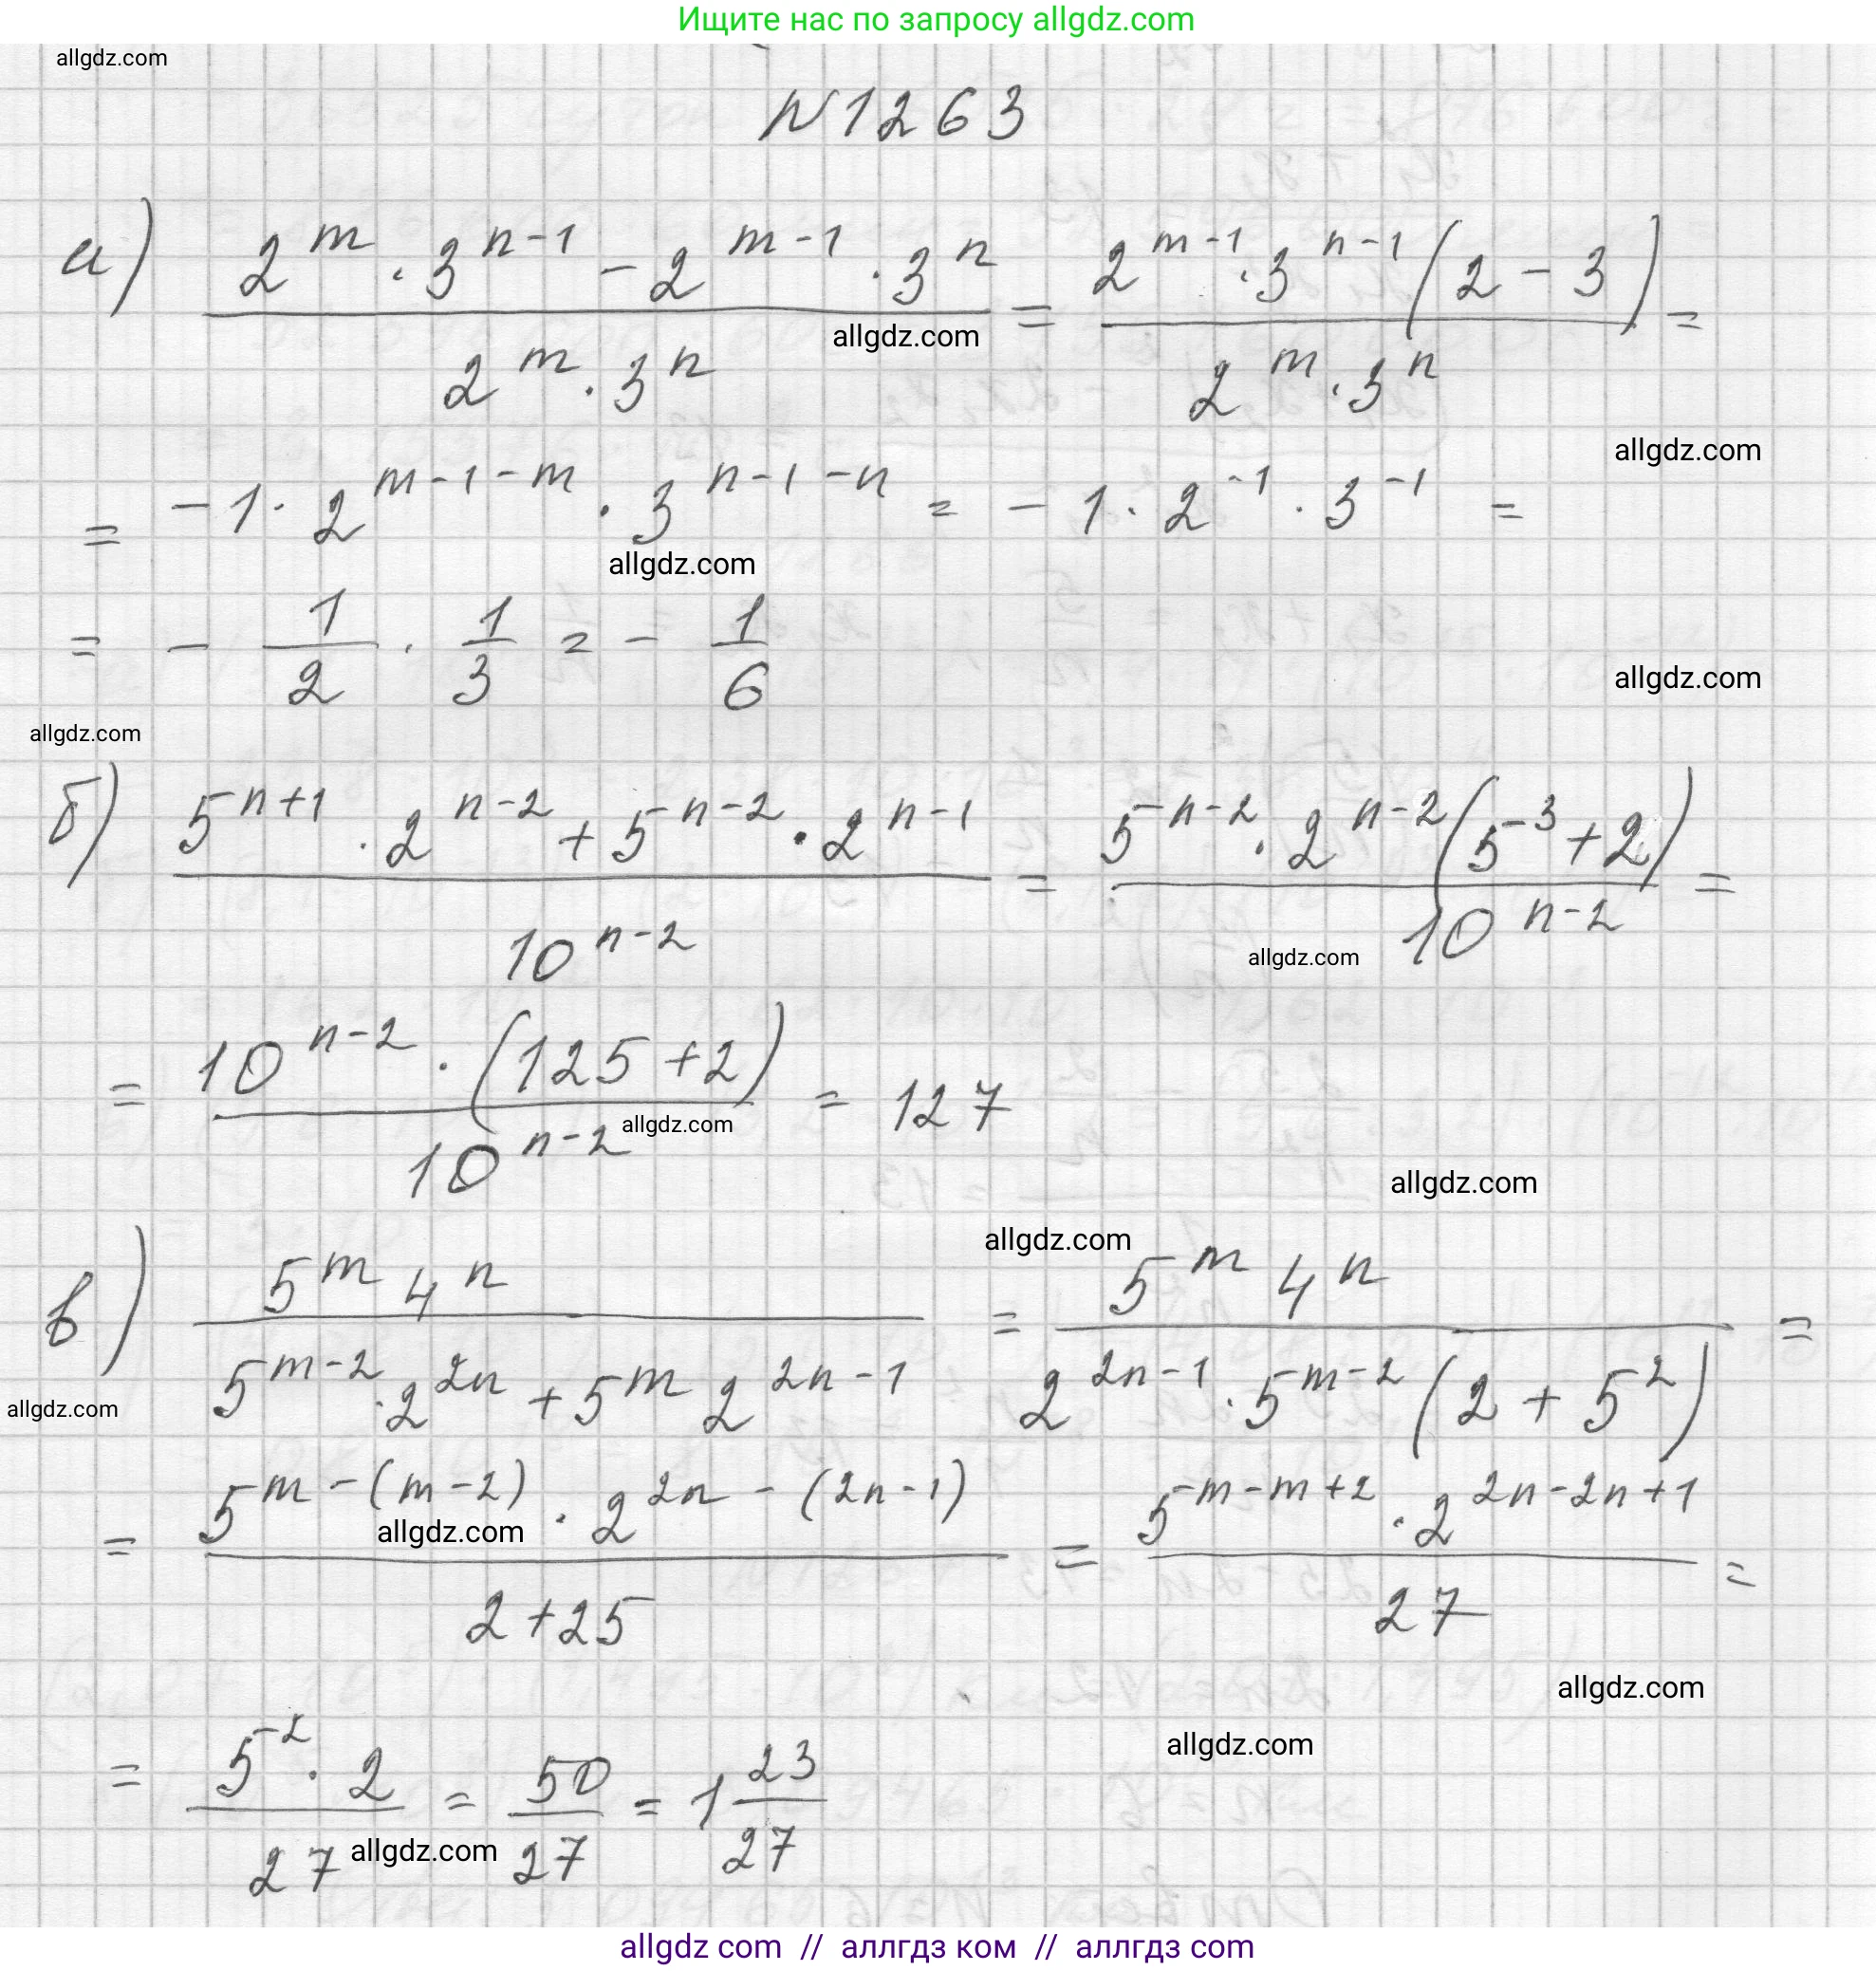 Ищите нас по запросу allgdz.com
allgdz.com
N1263
а) (2^m · 3^(n-1) - 2^(m-1) · 3^n) / (2^m · 3^n) = (2^(m-1) · 3^(n-1) (2 - 3)) / (2^m · 3^n) =
allgdz.com
allgdz.com
= -1 · 2^(m-1-m) · 3^(n-1-n) = -1 · 2^(-1) · 3^(-1) =
allgdz.com
= - 1/2 · 1/3 = - 1/6
allgdz.com
allgdz.com
б) (5^(n+1) · 2^(n-2) + 5^(n-2) · 2^(n-1)) / 10^(n-2) = (5^(n-2) · 2^(n-2) (5^3 + 2)) / 10^(n-2) =
allgdz.com
= (10^(n-2) · (125 + 2)) / 10^(n-2) = 127
allgdz.com
allgdz.com
allgdz.com
в) (5^m 4^n) / (5^(m-2) · 2^(2n) + 5^m 2^(2n-1)) = (5^m 4^n) / (2^(2n-1) · 5^(m-2) (2 + 5^2)) =
allgdz.com
= (5^(m-(m-2)) · 2^(2n-(2n-1))) / (2+25) = (5^(m-m+2) · 2^(2n-2n+1)) / 27 =
allgdz.com
allgdz.com
allgdz.com
= (5^2 · 2) / 27 = 50/27 = 1 23/27
allgdz.com
allgdz com // аллгдз ком // аллгдз com